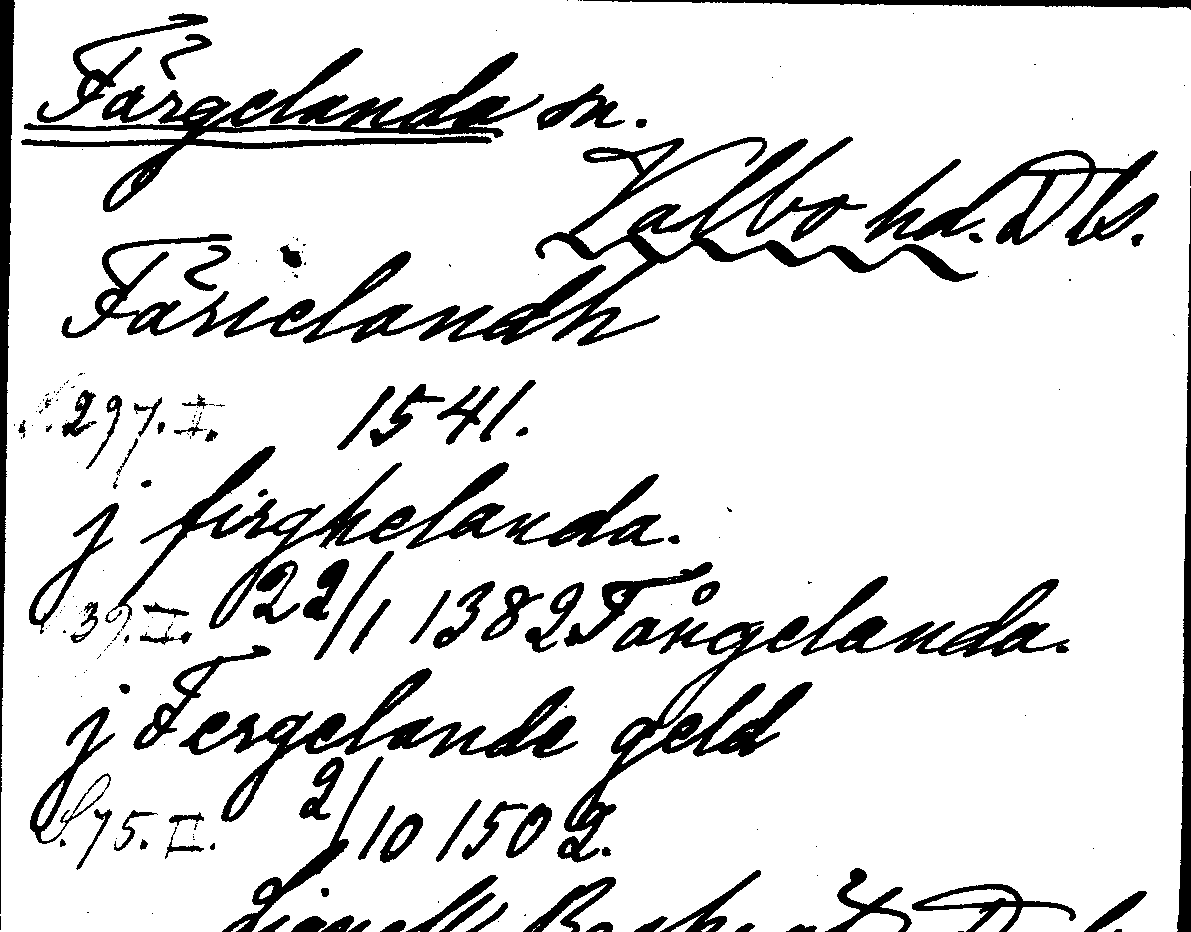 Färgelanda sn.
Valbo hd. Dls.
Färielandh
S. 297. II. 1541.
j firghelanda.
S. 39. II. 22/1 1382 Fårgelanda.
j Fergelande geld
S. 75. II. 2/10 1502.
Lignell: Beskr. öf.